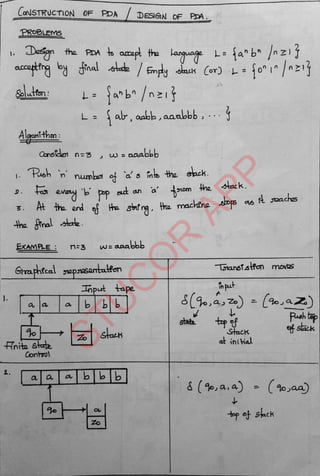 CONSTRUCTION OF PDA / DESIGN OF PDA.
PROBLEMS
1. Design the PDA to accept the language L = {aⁿbⁿ /n≥1}
accepting by final state / Empty stack (or) L = {0ⁿ1ⁿ/n≥1}
Solution: L = {aⁿbⁿ /n≥1}
L = {ab, aabb, aaabbb, ... }
Algorithm:
Consider n=3 , w=aaabbb
1. Push 'n' number of 'a's into the stack.
2. For every 'b' pop out an 'a' from the stack.
3. At the end of the string, the machine stops as it reaches
the final state.
EXAMPLE : n=3 w=aaabbb
Graphical representation
Transition moves
1.
Input tape
a a a b b b
q0
Z0
Stack
Finite state
Control
input
δ(q0,a,Z0) = (q0,aZ)
state
top of
stack
at initial
Push top
of stack
2.
a a a b b b
q0
a
Z0
δ (q0,a,a) = (q0,aa)
top of stack
STUCOR APP